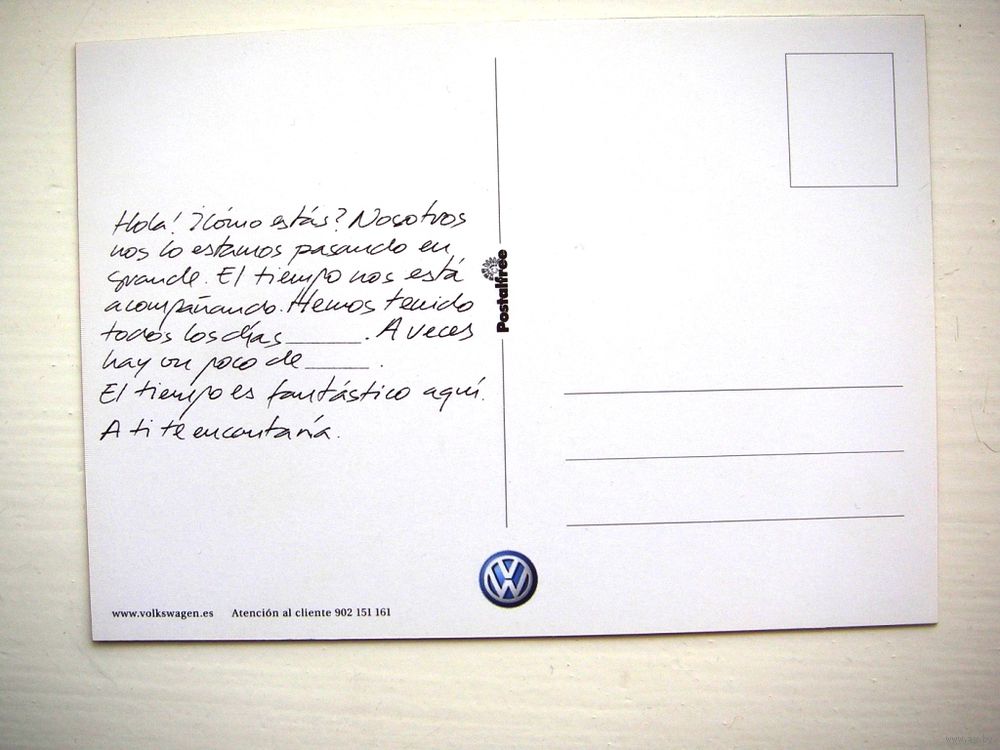 Hola! ¿Cómo estás? Nosotros
nos lo estamos pasando en
grande. El tiempo nos está
acompañando. Hemos tenido
todos los días ______. A veces
hay un poco de ______.
El tiempo es fantástico aquí.
A ti te encantaría.
Postalfree
www.volkswagen.es Atención al cliente 902 151 161